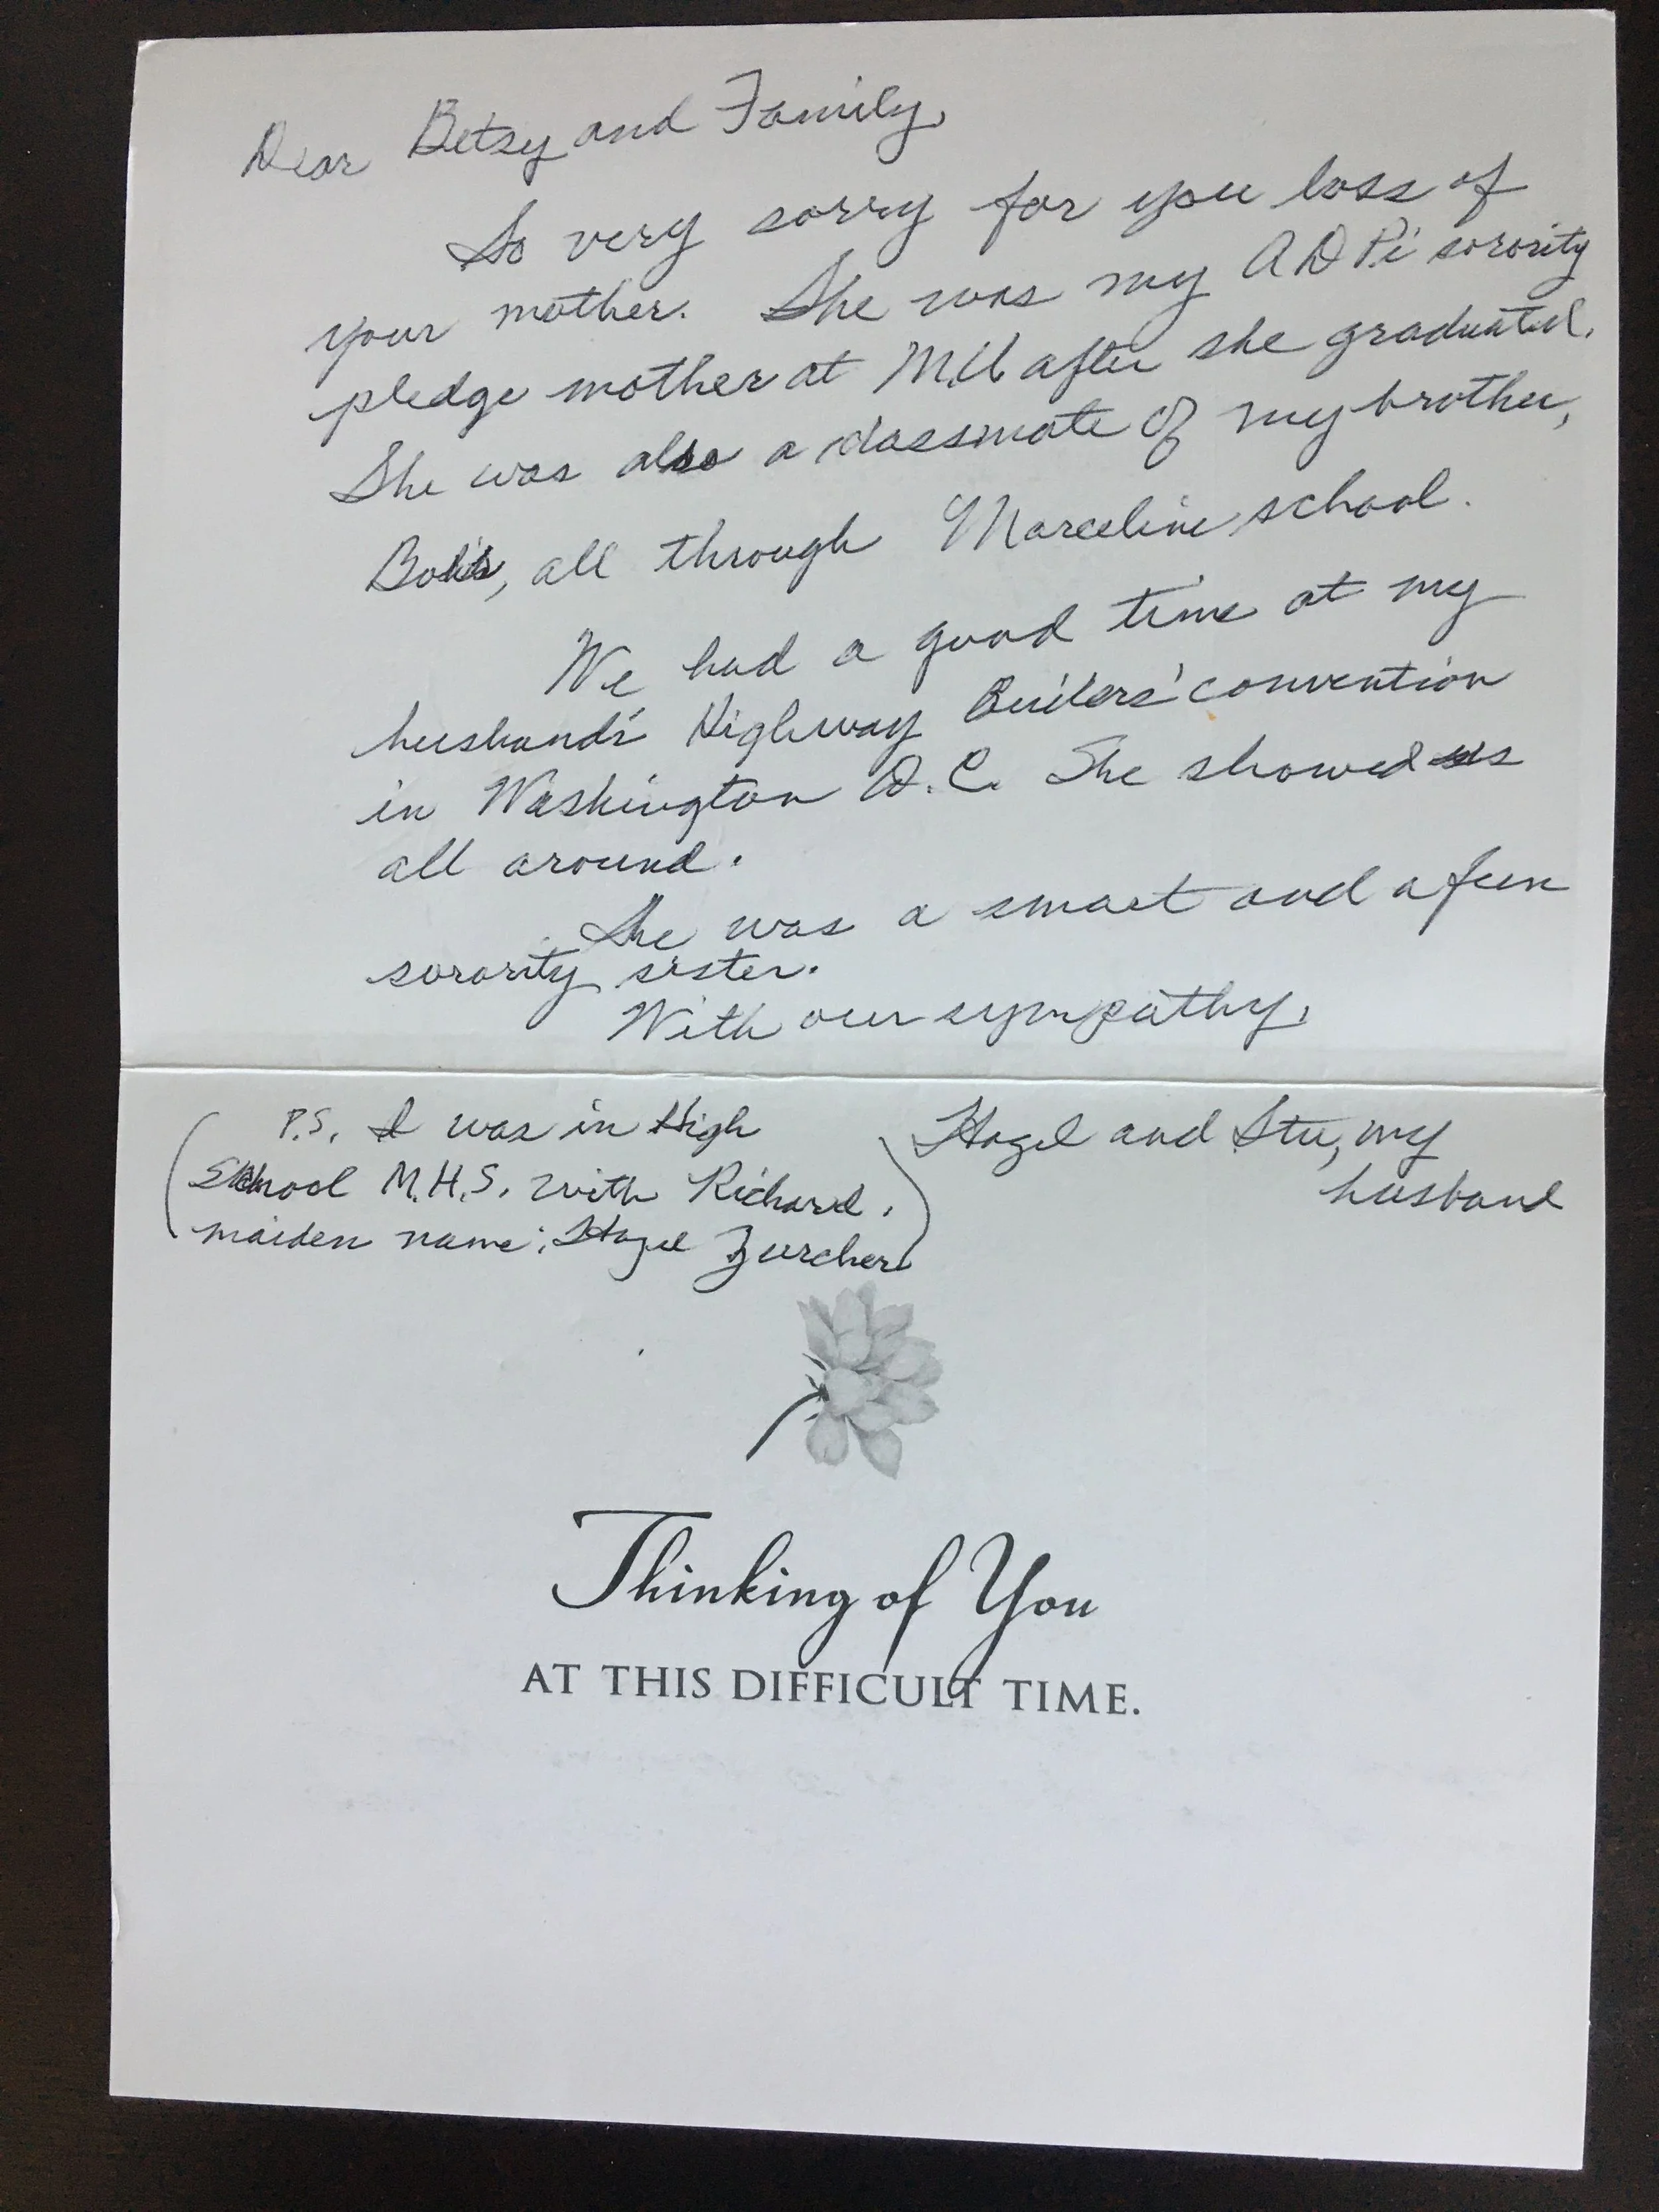 Dear Betsy and Family,
So very sorry for you loss of
your mother. She was my ADPi sorority
pledge mother at M.U. after she graduated.
She was also a classmate of my brother,
all through Marceline school.
We had a good time at my
husband's Highway Builders' convention
in Washington D.C. She showed us
all around.
She was a smart and a fun
sorority sister.
With our sympathy,
Hazel and Stu, my
husband
P.S. I was in High
School M.H.S. with Richard.
maiden name: Hazel Zurcher
Thinking of You
AT THIS DIFFICULT TIME.